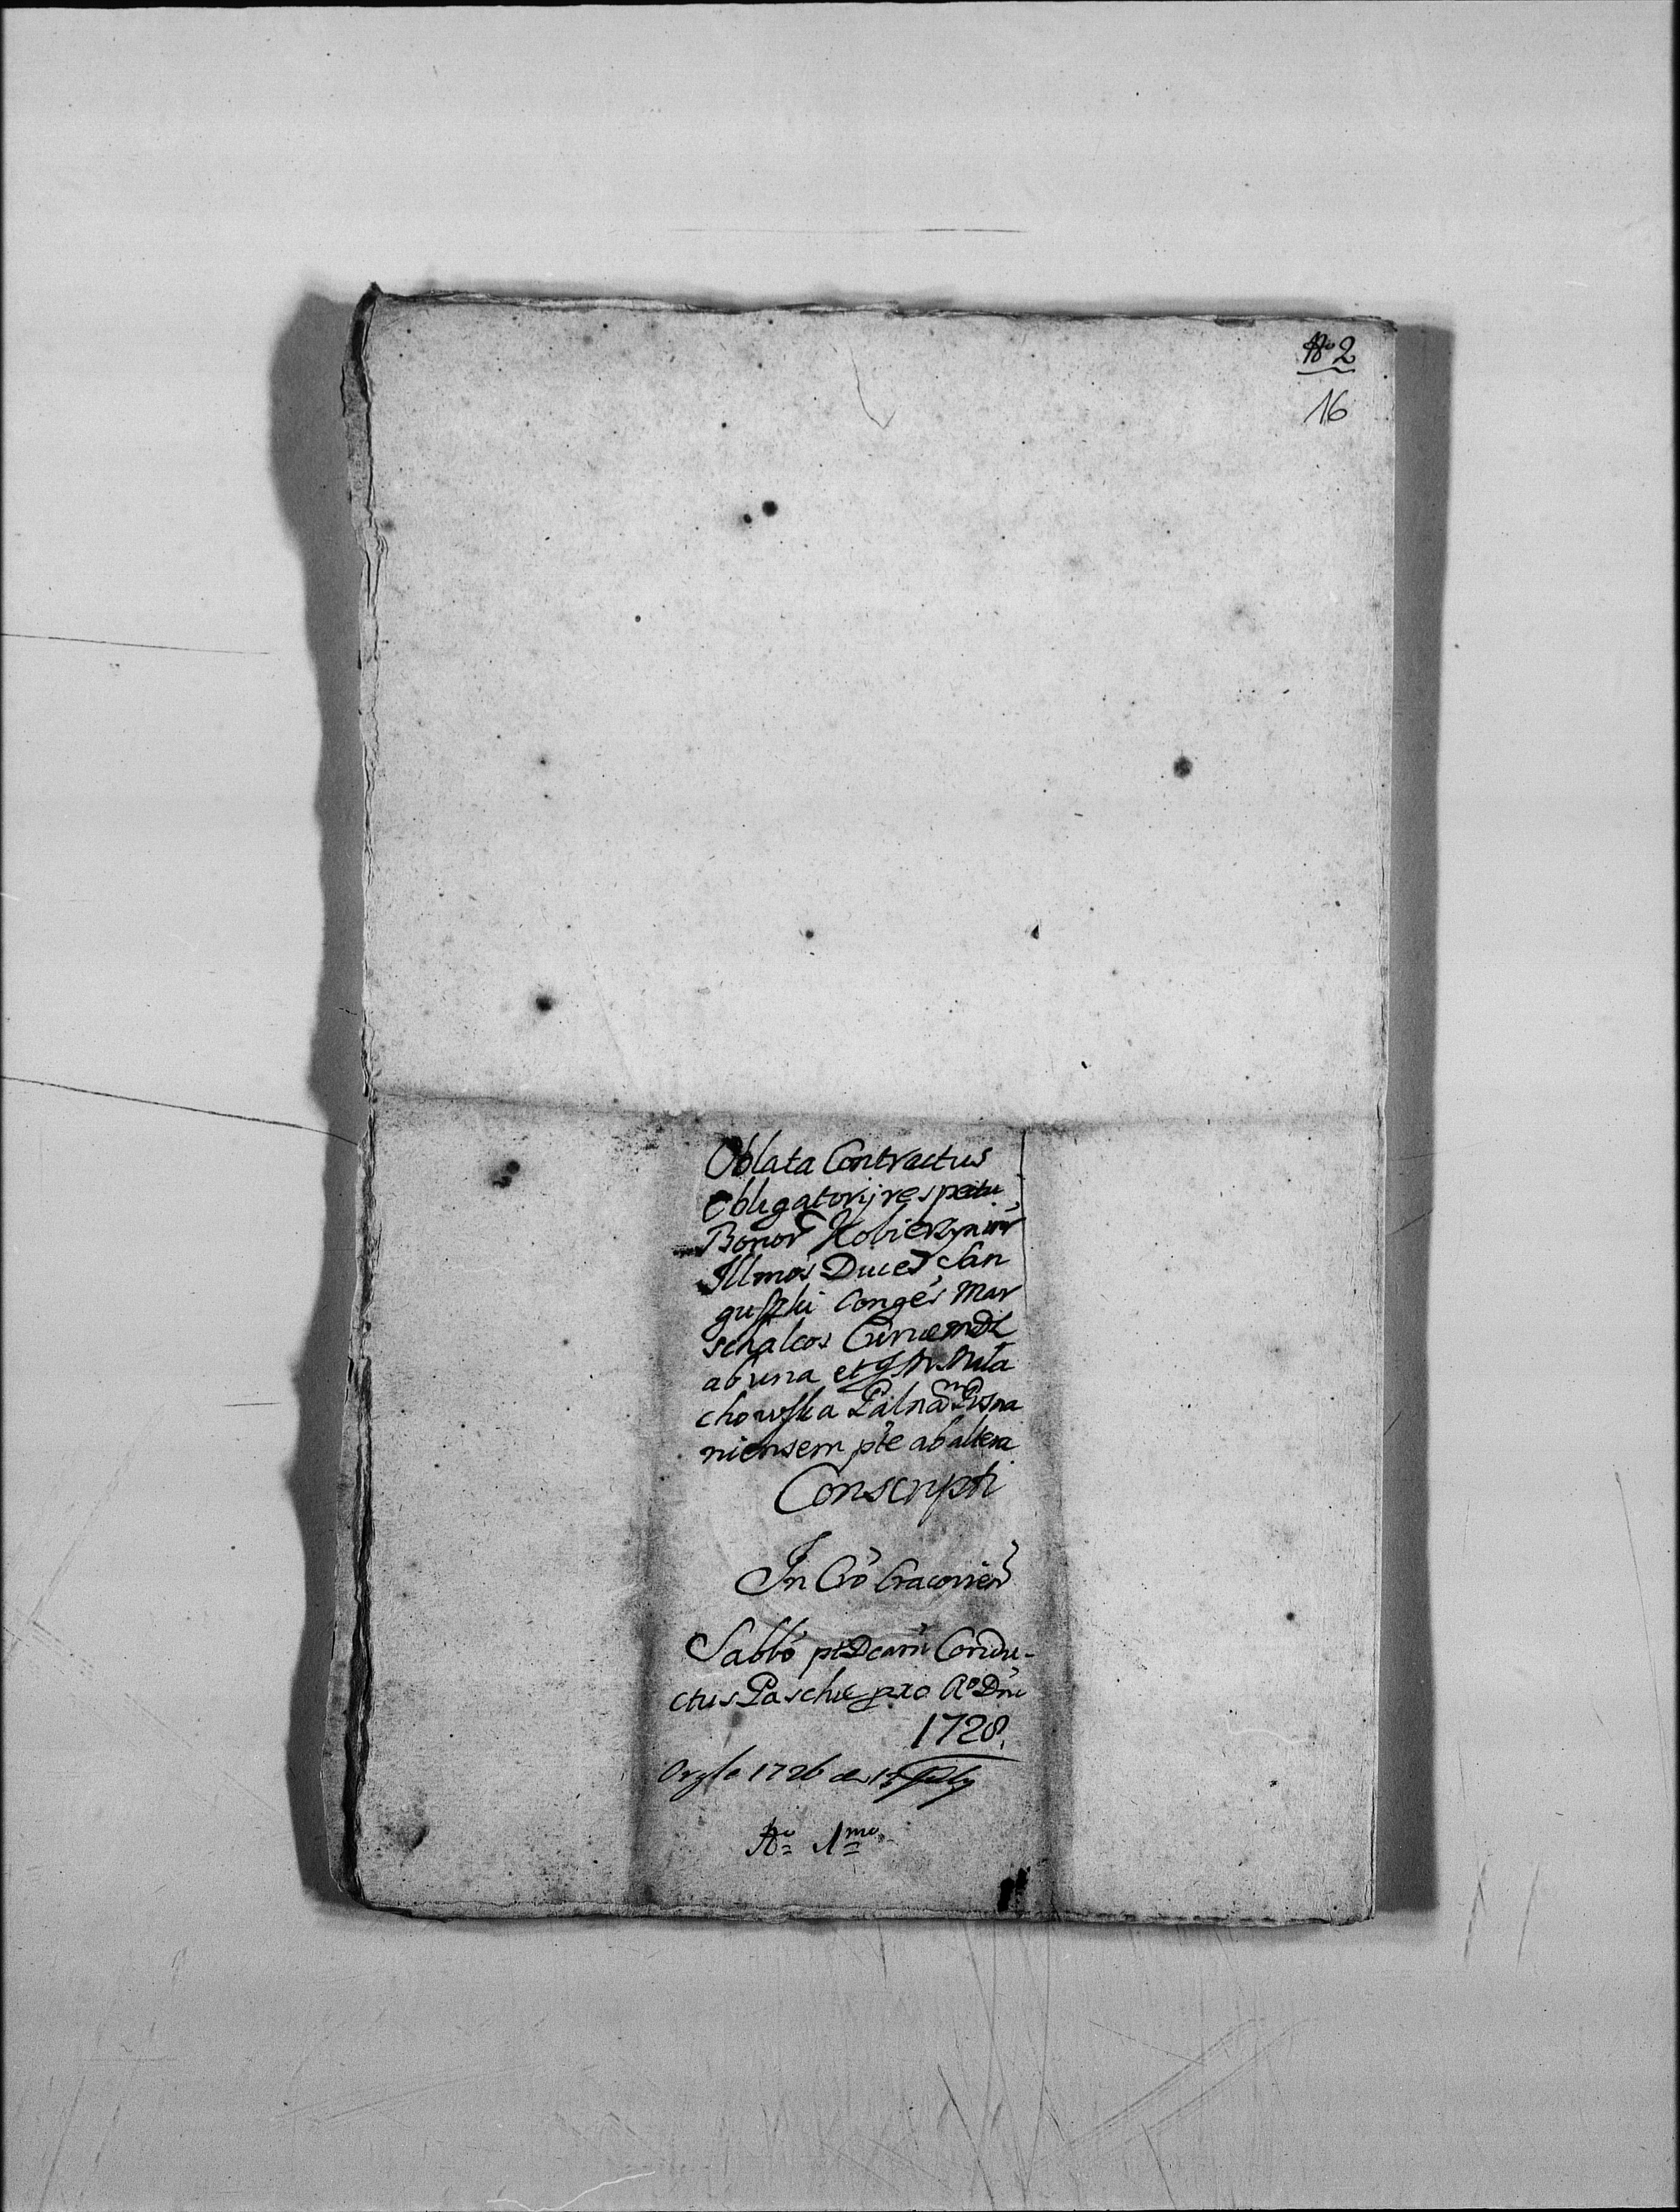 No 2
16
Oblata Contractus
Obligatorij respectu
Bonor Kobierzyn inr
Illmos Duces San
guszki Conges Mar
schalcos Curiae MDL
ab una et G. M. Mała
chowska Palnam Posna
niensem pte ab altera
Conscripti
In Cro Cracovien
Sabbo pt Dcam Condu-
ctus Paschae pxo Ao Dni
1728.
1726 15 July
No 1mo